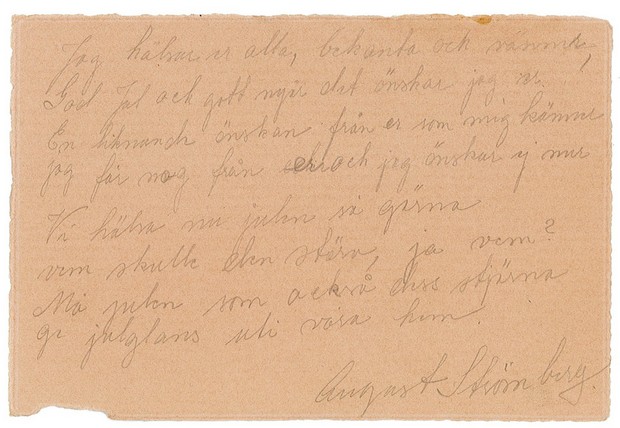 Jag hälsar er alla, bekanta och vänner,
God Jul och gott nyår det önskar jag er.
En liknande önskan från er som mig känner
jag får nog från er och jag önskar ej mer
Vi hälsa nu julen så gärna
vem skulle den störa, ja vem?
Må julen som också dess stjärna
ge julglans uti våra hem.
August Strömberg.